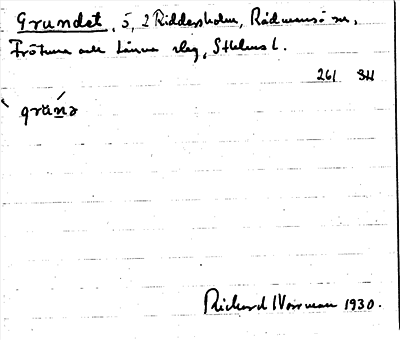 Grundet, 5, 2 Riddersholm, Rådmansö sn,
Frötuna och Länna slg, Sthlms l.
261 SH
grúna
Rickard Wårman 1930.